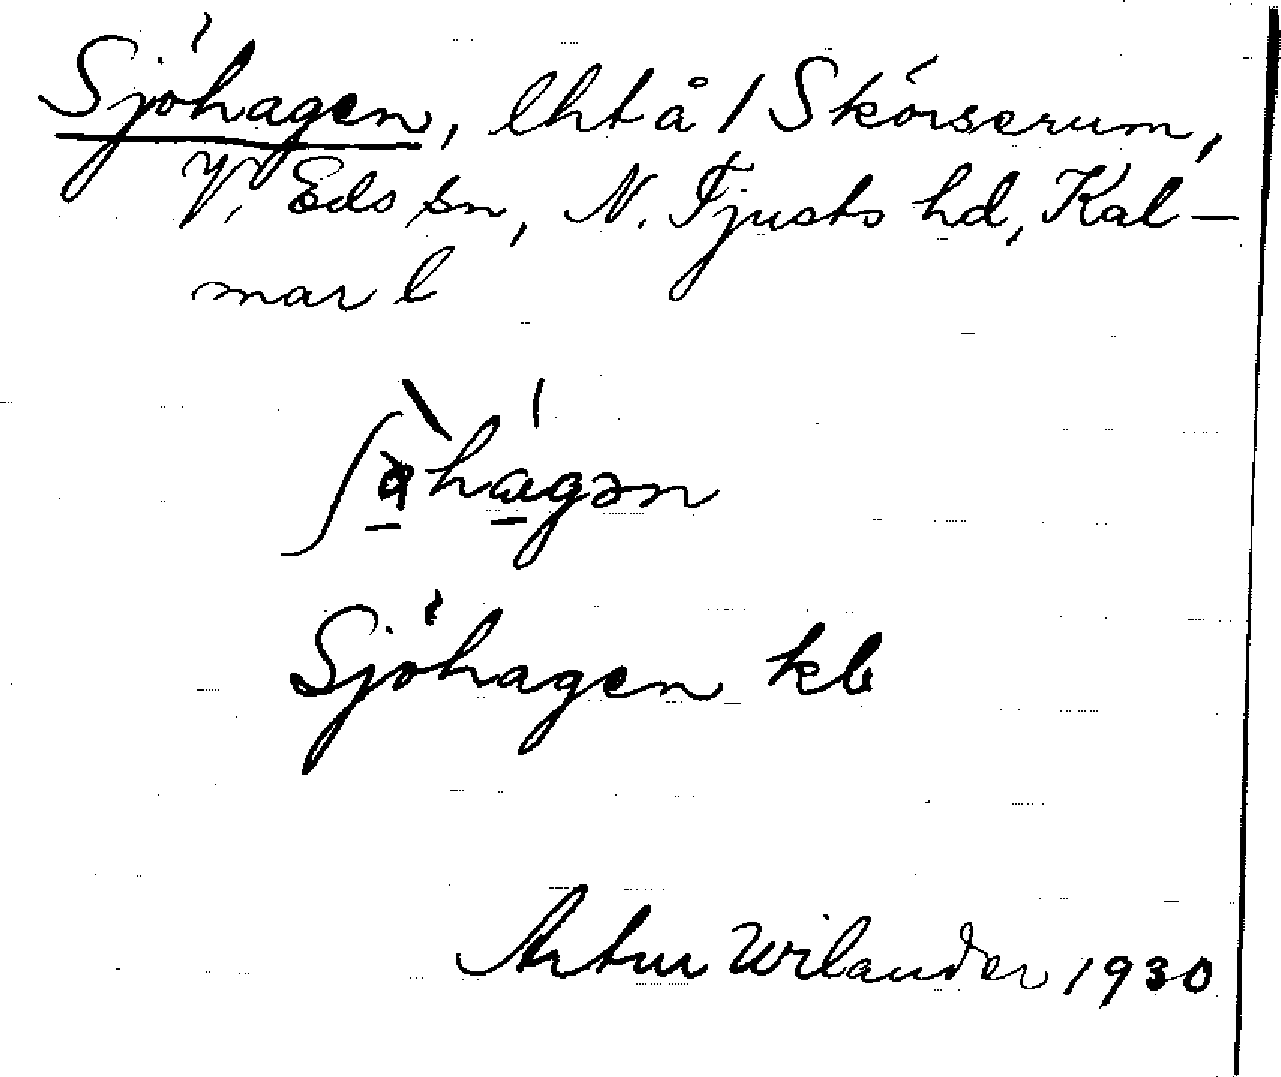 Sjöhagen, lht å 1 Skörserum,
V. Eds sn, N. Tjusts hd, Kal-
mar l
Sjöhagen kb
Artur Wilander 1930